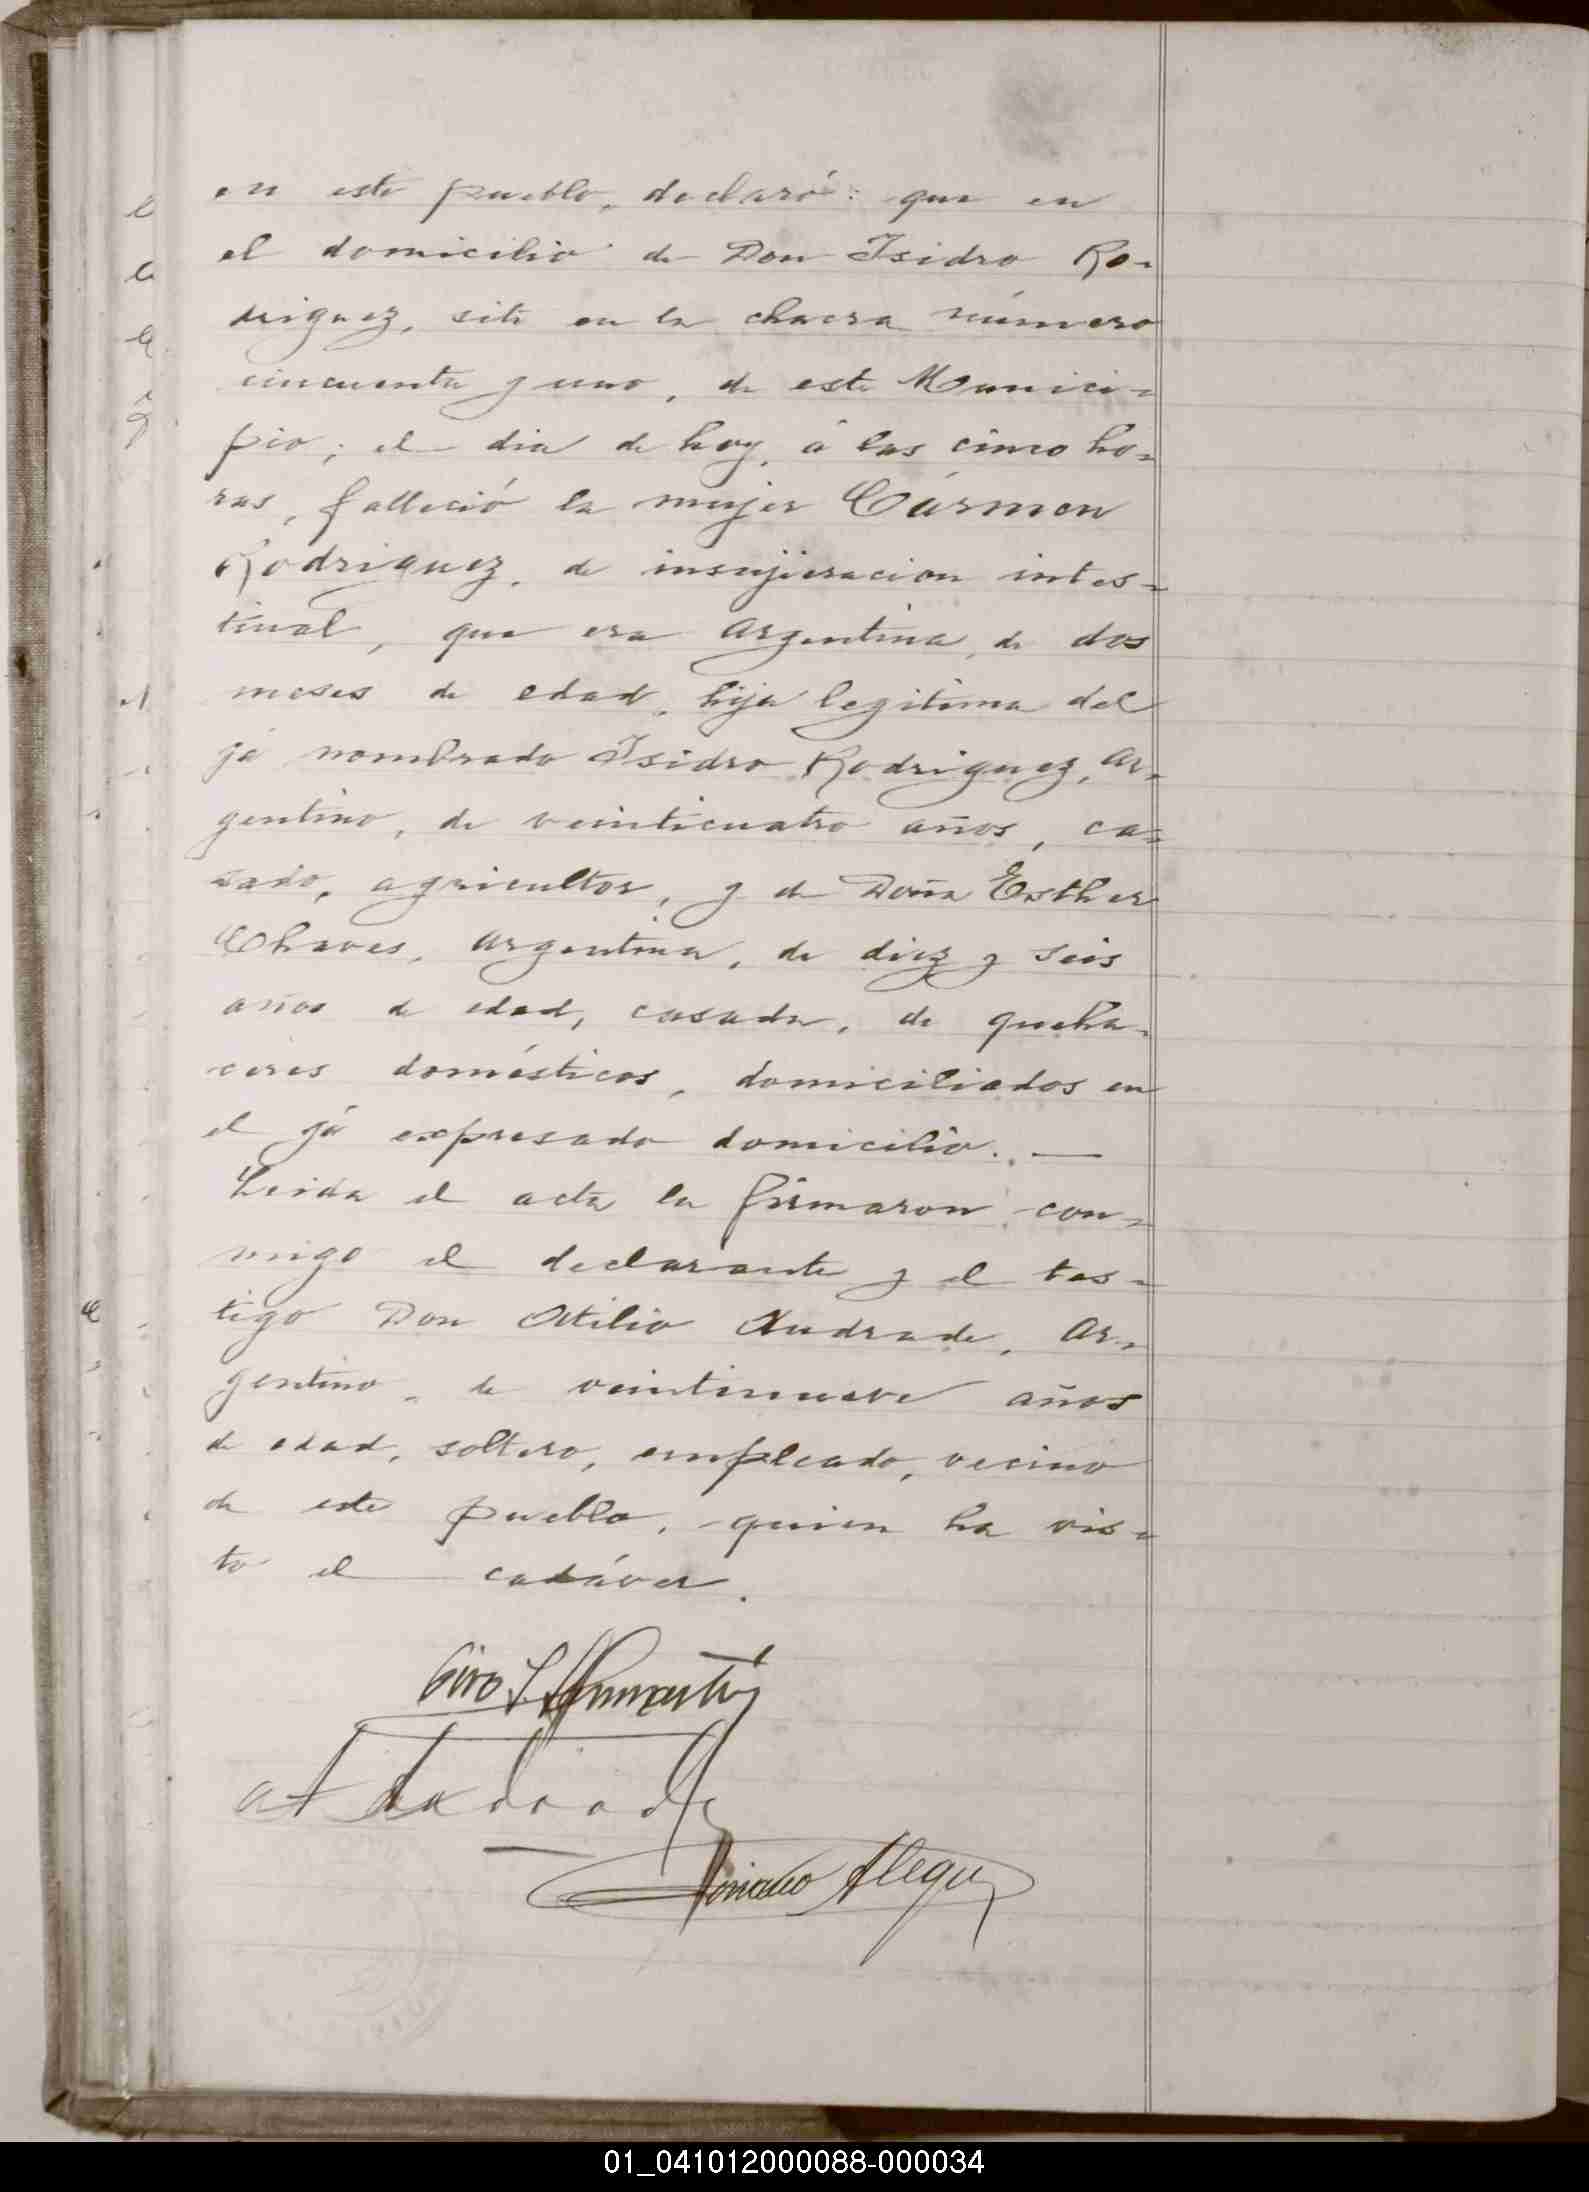 en este pueblo, declaró: que en
el domicilio de Don Isidro Ro-
driguez, sito en la chacra número
cincuenta y uno, de este Munici-
pio; el dia de hoy, á las cinco ho-
ras, falleció la mujer Cármen
Rodriguez, de insujieracion intes-
tinal, que era argentina, de dos
meses de edad, hija legitima del
já nombrado Isidro Rodriguez, ar-
gentino, de veinticuatro años, ca-
sado, agricultor, y de Doña Esther
Chaves, argentina, de diez y seis
años de edad, casada, de queha-
ceres domésticos, domiciliados en
el já expresado domicilio. —
Leida el acta la firmaron con-
migo el declarante y el tes-
tigo Don Atilio Andrade, ar-
gentino, de veintinueve años
de edad, soltero, empleado, vecino
de este pueblo, quien ha vis-
to el cadáver.
At Andrade
Alegre
01_041012000088-000034